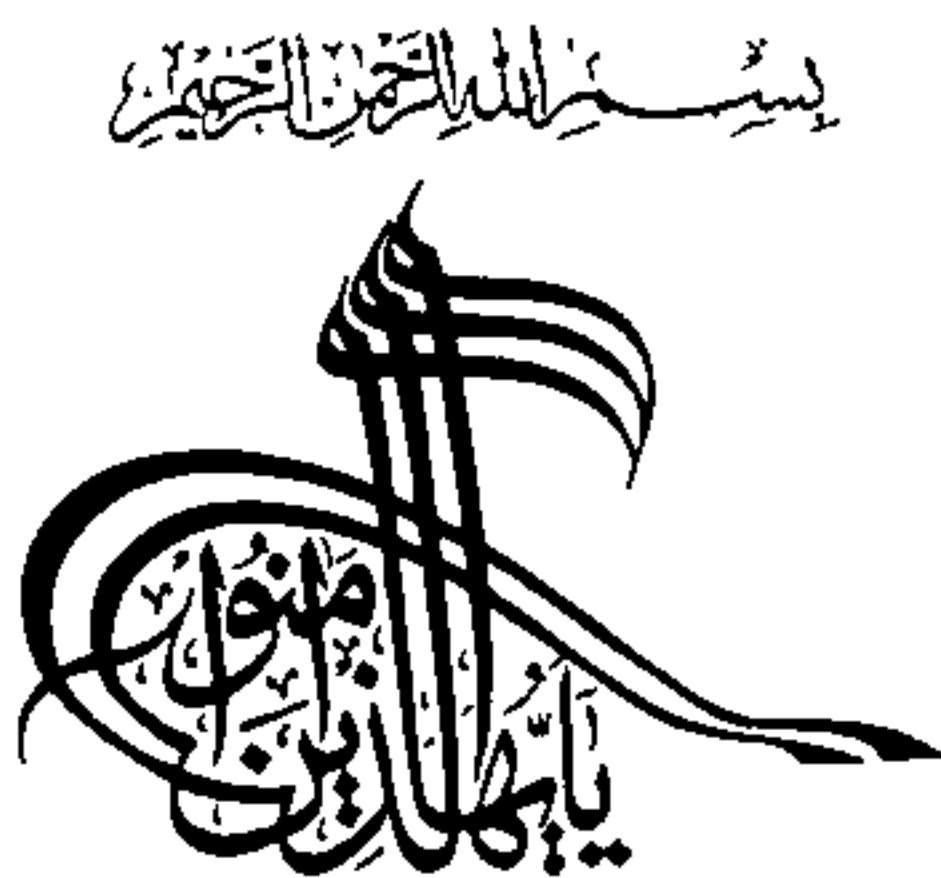 بِسْمِ اللهِ الرَّحْمٰنِ الرَّحِيْمِ
يَا أَيُّهَا الَّذِينَ آمَنُوا